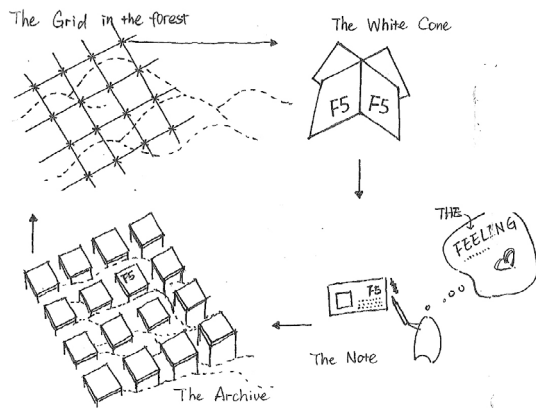 The Grid in the forest
The White Cone
F5 F5
THE
FEELING
F5
F5
The Note
The Archive